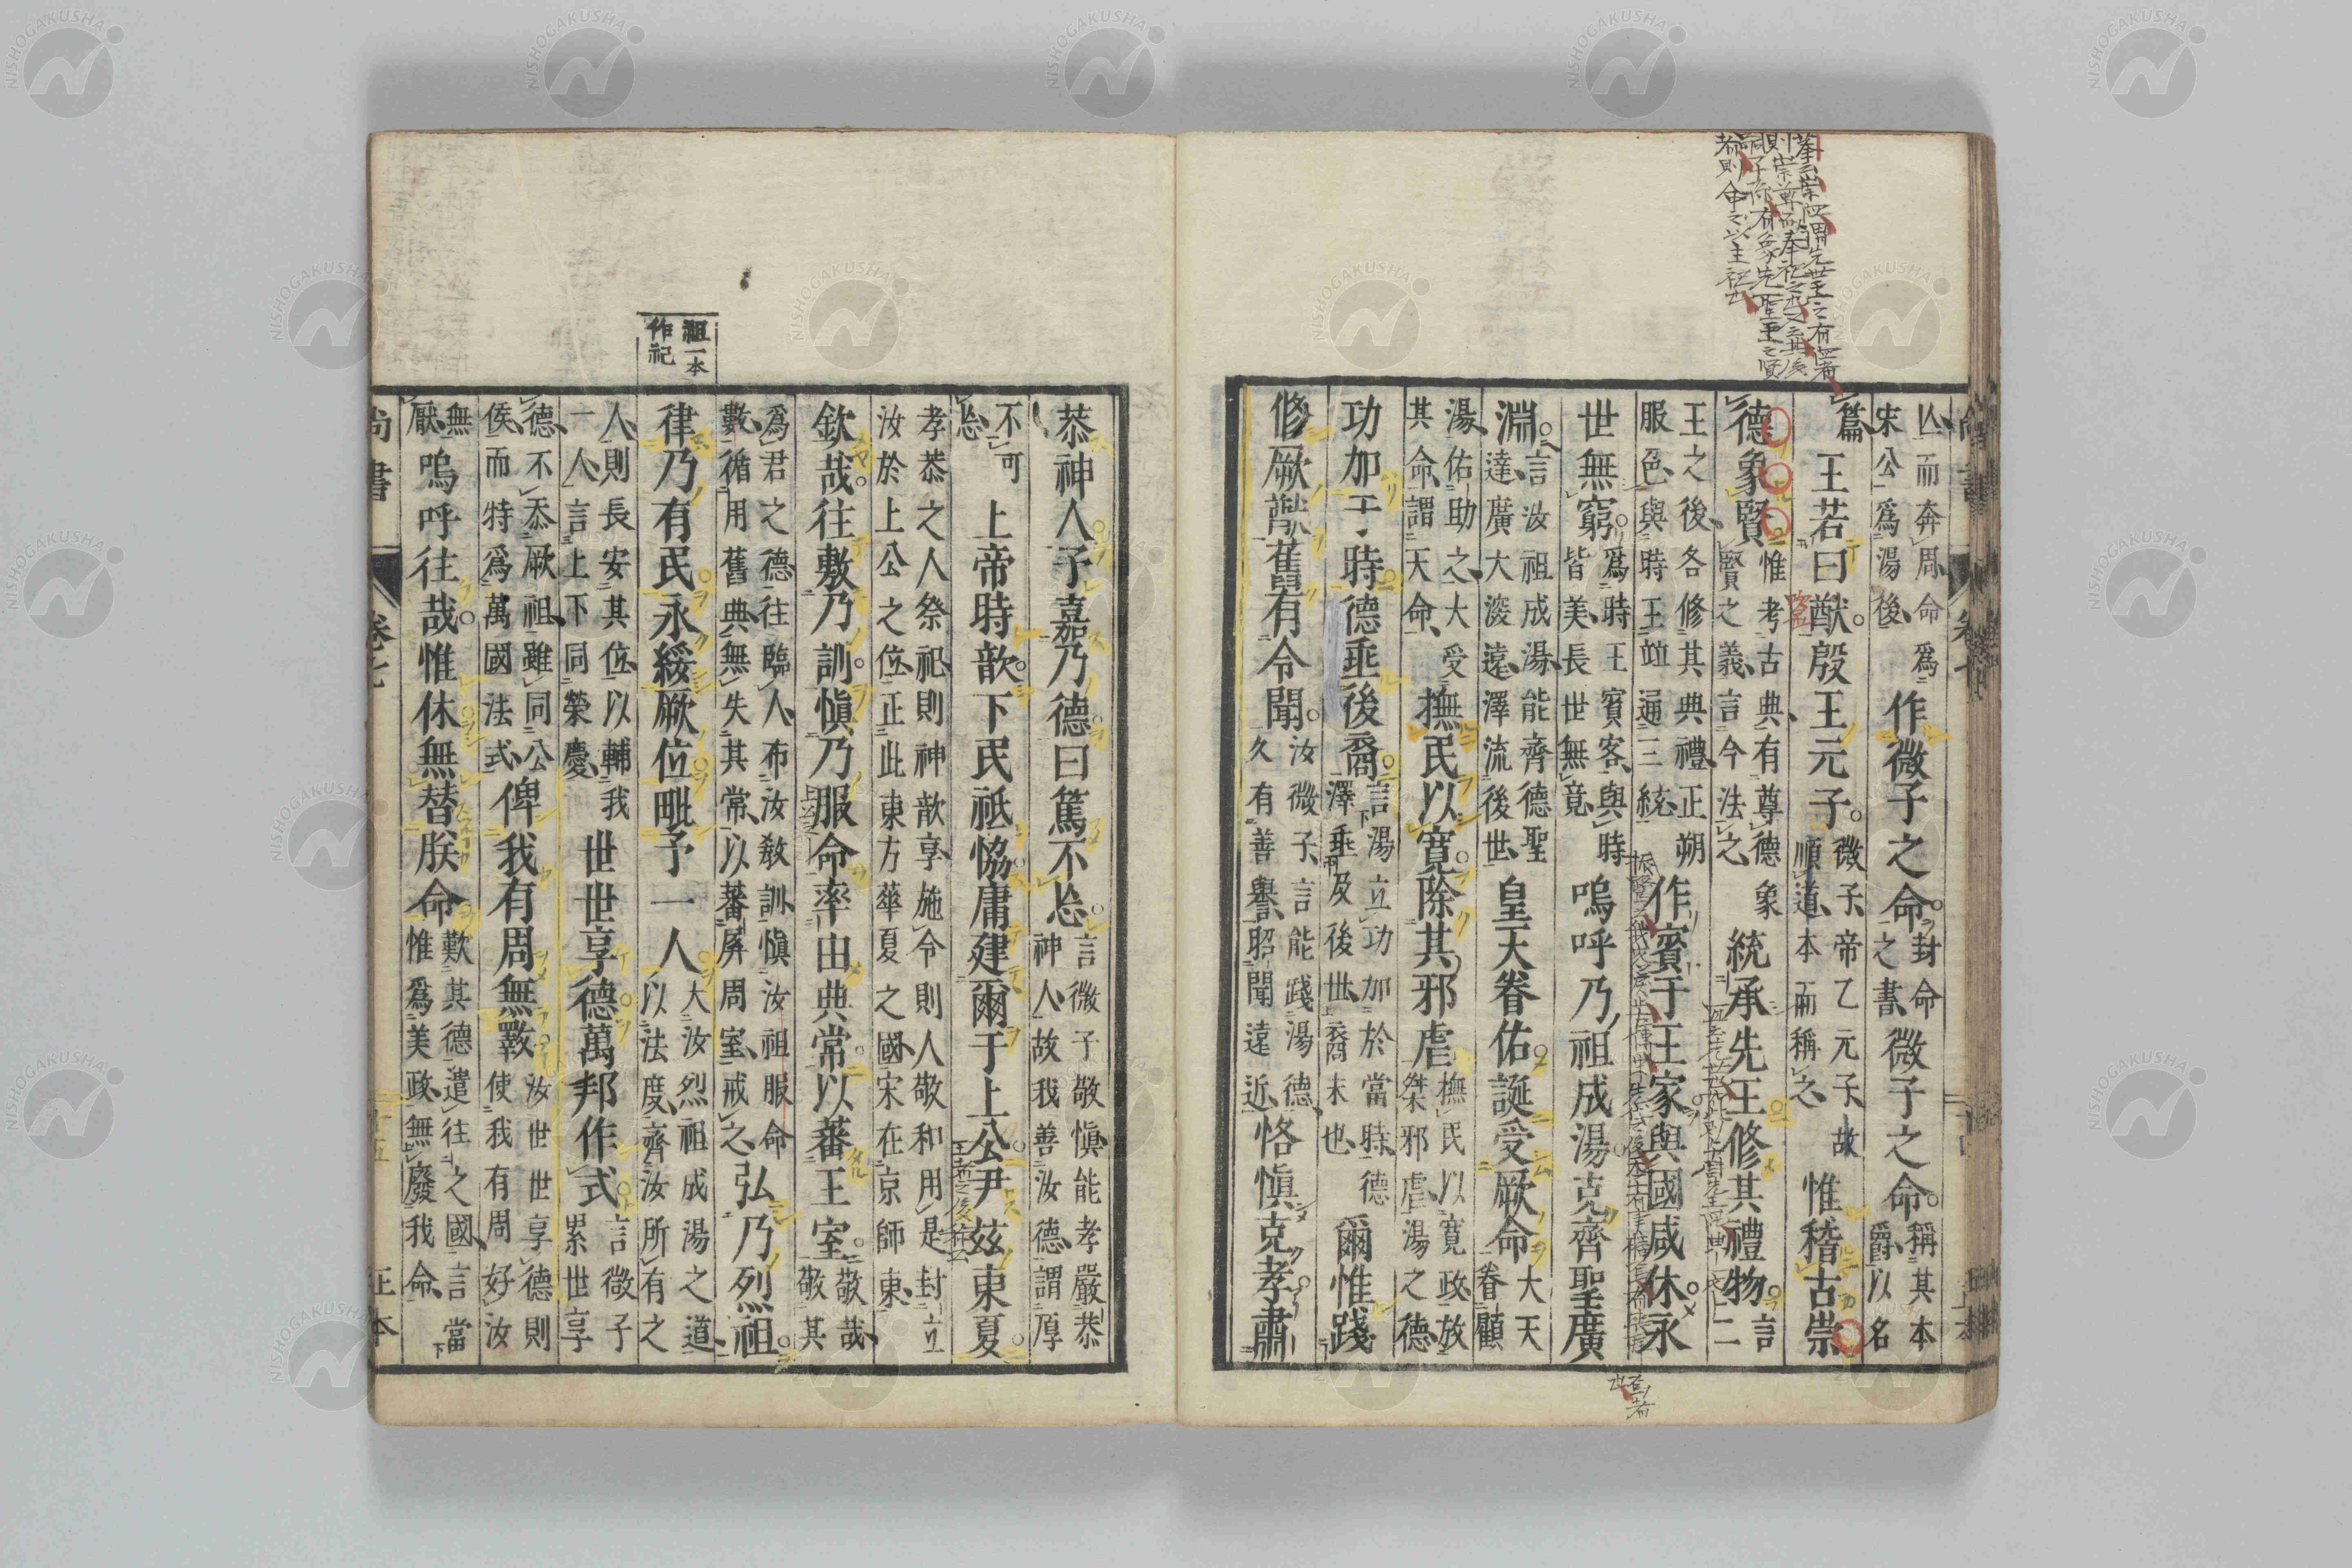 亾而奔周命爲宋公爲湯後作微子之命封命之書微子之命稱其本爵以名
篇王若曰猷殷王元子微子帝乙元子故順道本而稱之惟稽古崇
德象賢惟考古典有尊德象賢之義言今法之統承先王修其禮物言二
王之後各修其典禮正朔服色與時王竝通三統作賓于王家與國咸休永
世無窮爲時王賓客與時皆美長世無竟嗚呼乃祖成湯克齊聖廣
淵言汝祖成湯能齊德聖達廣大深遠澤流後世皇天眷佑誕受厥命大天眷顧
湯佑助之大受其命謂天命撫民以寬除其邪虐撫民以寬政放桀邪虐湯之德
功加于時德垂後裔言湯立功加於當時德澤垂及後世裔末也爾惟踐
修厥猷舊有令聞汝微子言能踐湯德久有善譽昭聞遠近恪愼克孝肅
恭神人予嘉乃德曰篤不忘言微子敬愼能孝嚴恭神人故我善汝德謂厚
不可忘上帝時歆下民祗協庸建爾于上公尹茲東夏
孝恭之人祭祀則神歆享施令則人敬和用是封立汝於上公之位正此東方華夏之國宋在京師東
欽哉往敷乃訓愼乃服命率由典常以蕃王室敬哉敬其
爲君之德往臨人布汝敎訓愼汝祖服命數循用舊典無失其常以蕃屏周室戒之弘乃烈祖
律乃有民永綏厥位毗予一人大汝烈祖成湯之道以法度齊汝所有之
人則長安其位以輔我一人言上下同榮慶世世享德萬邦作式言微子累世享
德不忝厥祖雖同公侯而特爲萬國法式俾我有周無斁汝世世享德則使我有周好汝
無厭嗚呼往哉惟休無替朕命歎其德遣往之國言當惟爲美政無廢我命
祖一本作祀
尚書
卷七
NISHOGAKUSHA